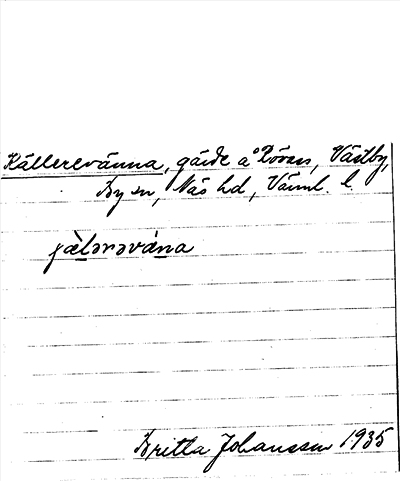 Källerevänna, gärde å Röven, Västby,
By sn, Näs hd, Värml. l.
jàlərəvána
Britta Johansson 1935